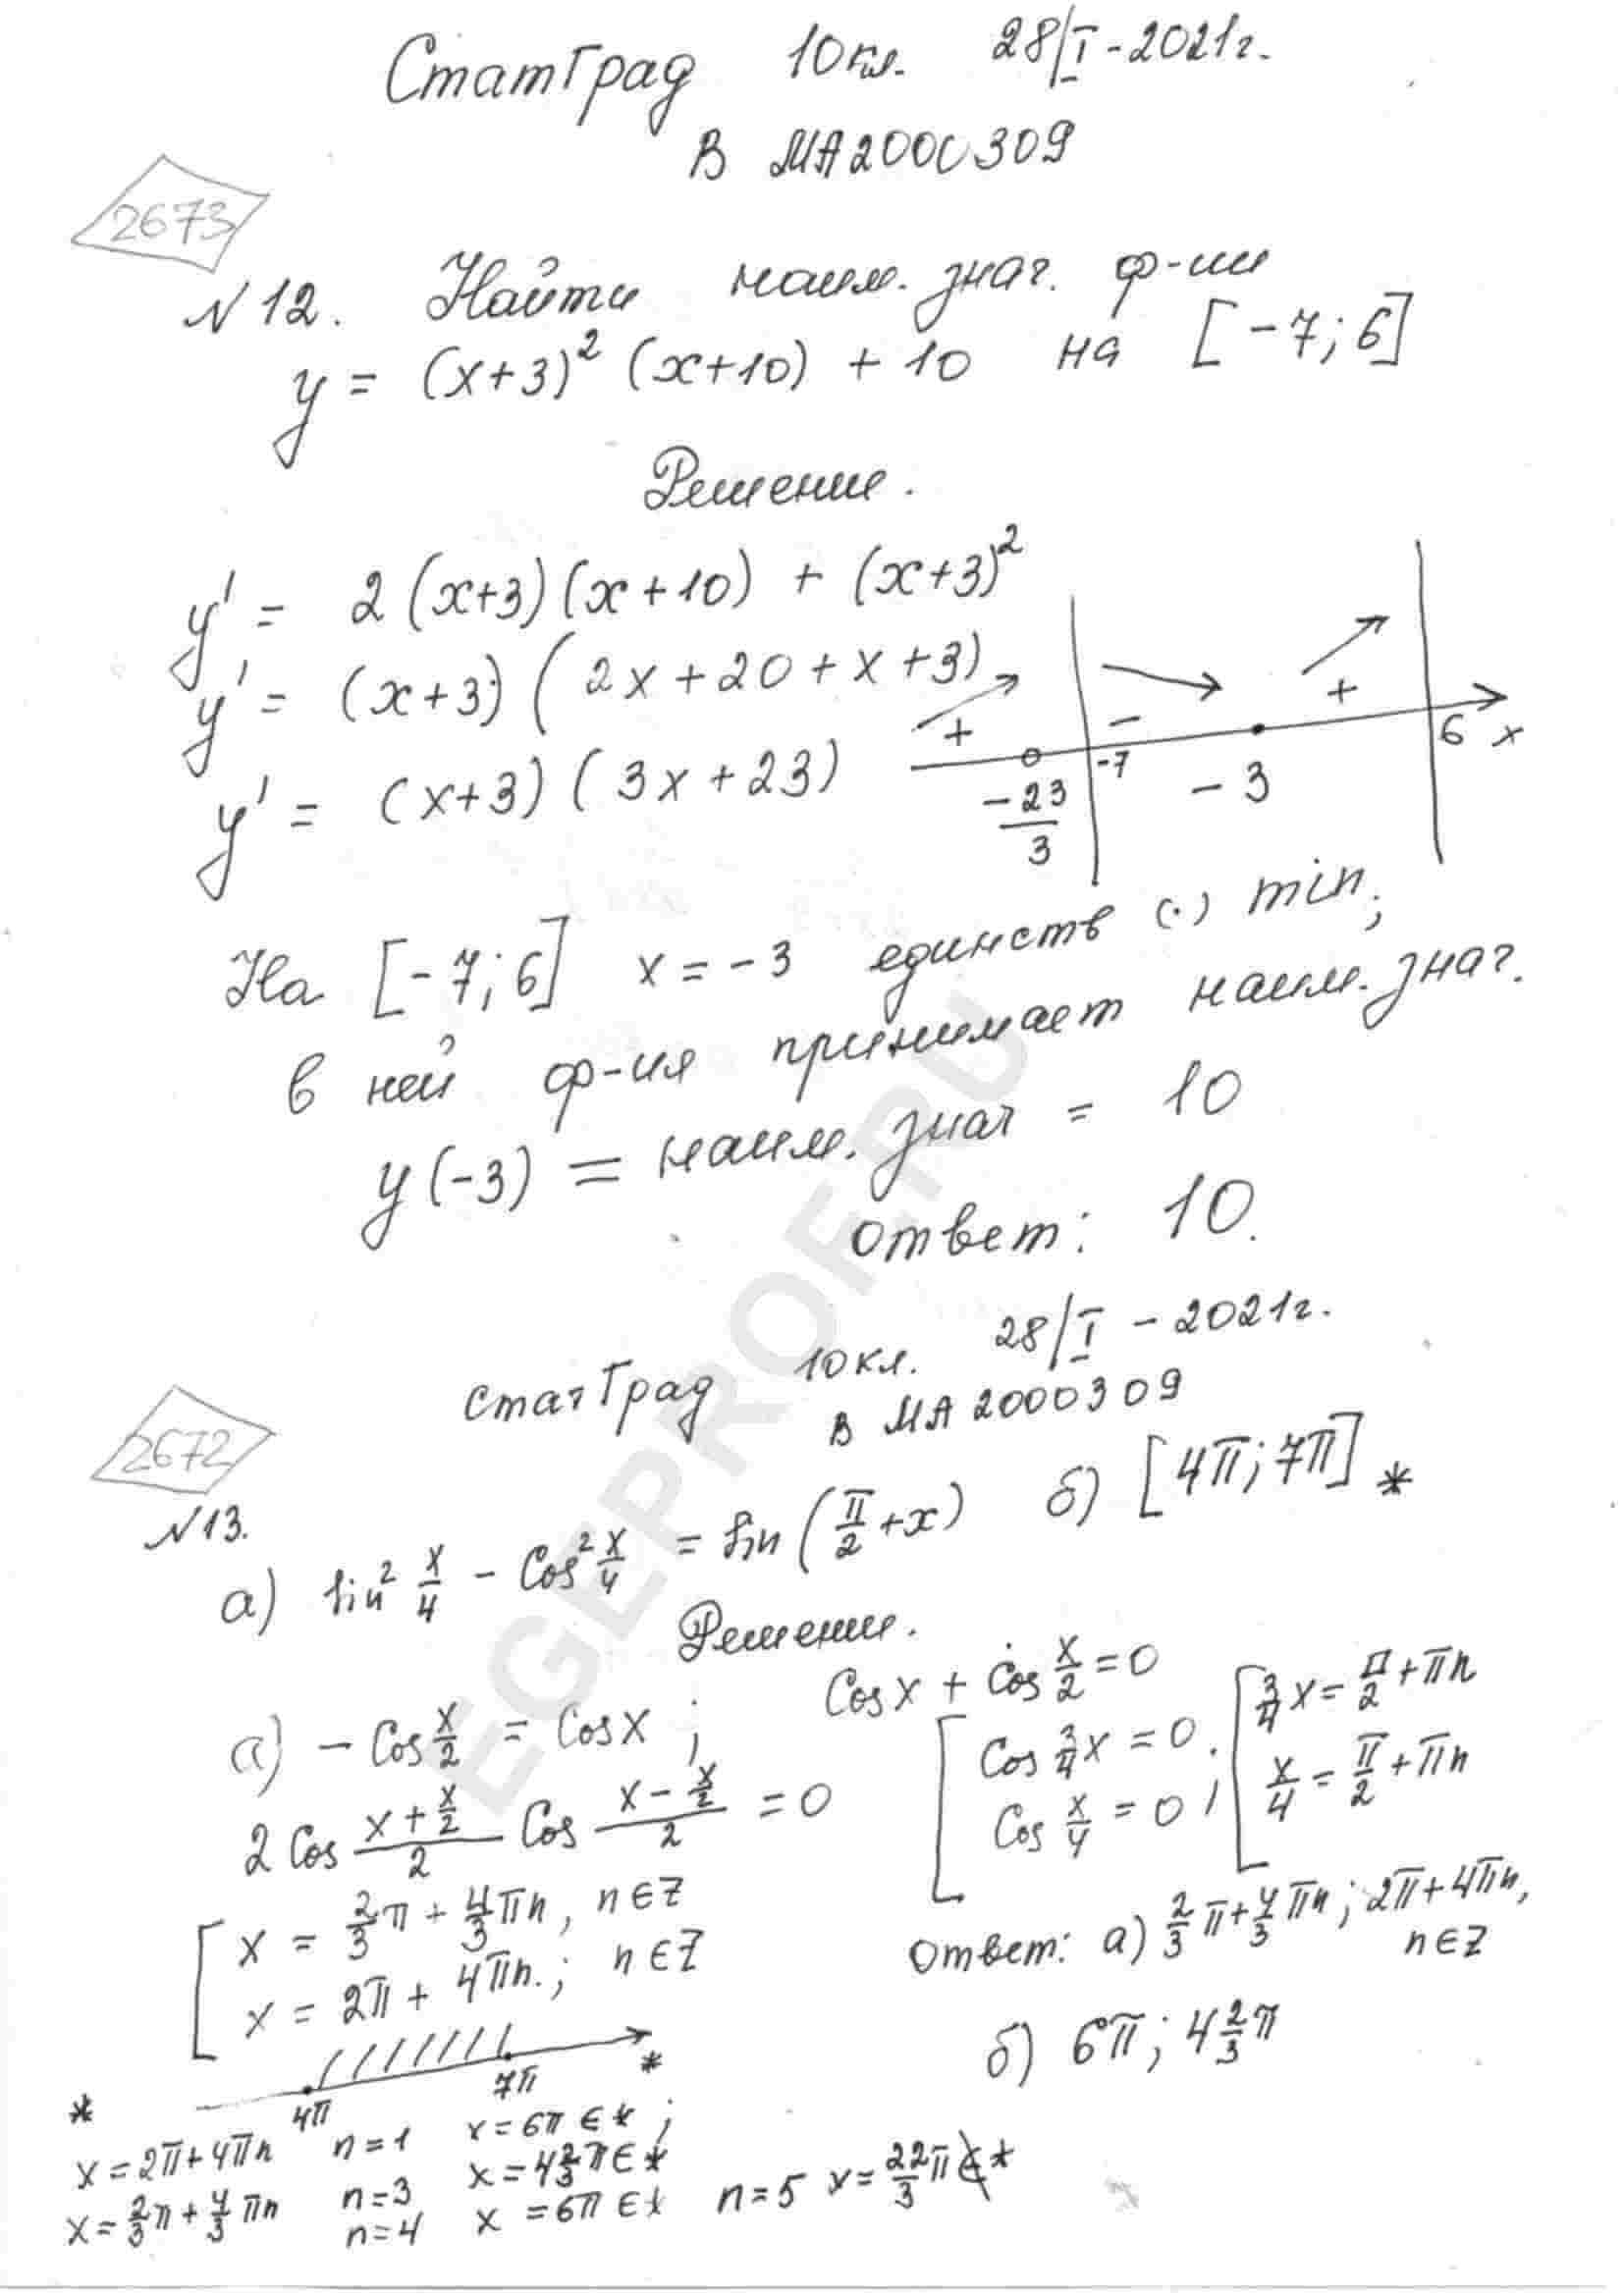 СтатГрад 10кл. 28/I-2021г.
В МА2000309
2673
№12. Найти наим. знач. ф-ии
y = (x+3)² (x+10) + 10 на [-7; 6]
Решение.
y' = 2(x+3)(x+10) + (x+3)²
y' = (x+3)(2x+20+x+3)
y' = (x+3)(3x+23)
+ - +
-23/3 -7 -3 6 x
На [-7; 6] x = -3 единств (·) min;
в ней ф-ия принимает наим. знач.
y(-3) = наим. знач = 10
Ответ: 10.
СтатГрад 10кл. 28/I - 2021г.
В МА 2000309
2672
№13.
а) sin² x/4 - Cos² x/4 = sin(π/2 + x) б) [4π; 7π] *
Решение.
а) - Cos x/2 = Cos x ; Cos x + Cos x/2 = 0
2 Cos (x + x/2)/2 Cos (x - x/2)/2 = 0
[ Cos 3/4 x = 0
Cos x/4 = 0 ;
[ 3/4 x = π/2 + πn
x/4 = π/2 + πn
[ x = 2/3 π + 4/3 πn, n∈Z
x = 2π + 4πn.; n∈Z
Ответ: а) 2/3 π + 4/3 πn; 2π + 4πn,
n∈Z
б) 6π; 4 2/3 π
* 4π 7π *
x = 2π + 4πn n=1 x = 6π ∈ * ;
x = 2/3 π + 4/3 πn n=3 x = 4 2/3 π ∈ *
n=4 x = 6π ∈ * n=5 x = 22/3 π ∉ *
EGEPROF.RU